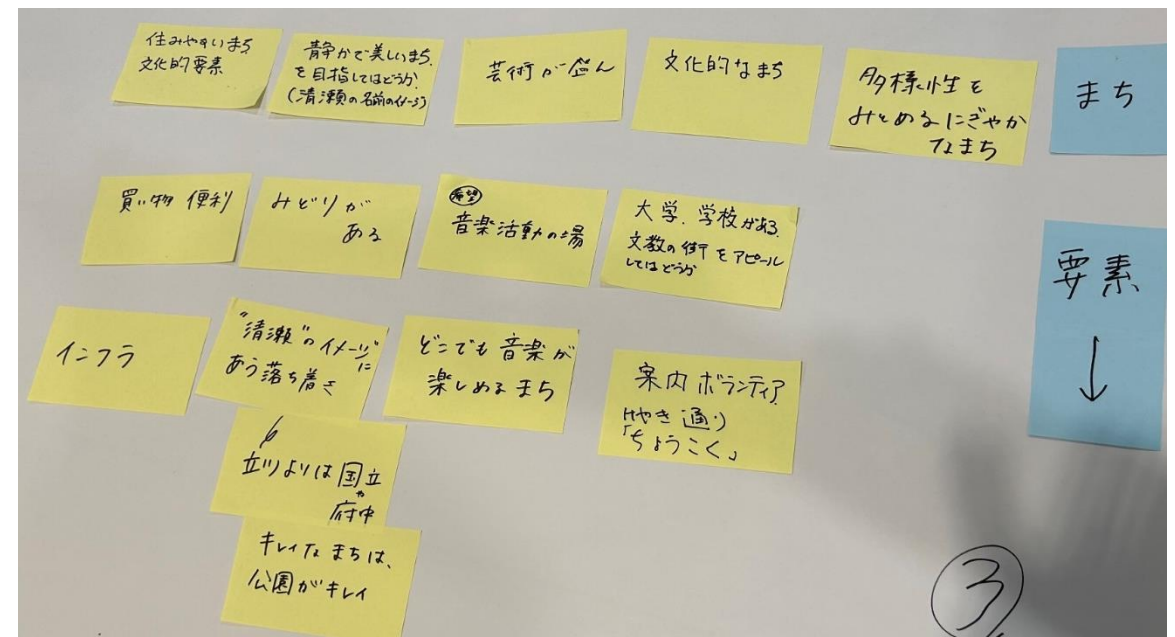 住みやすいまち
文化的要素
静かで美しいまち.
を目指してはどうか.
(清瀬の名前のイメージ)
芸術が盛ん
文化的なまち
多様性を
みとめるにぎやか
なまち
まち
買い物 便利
みどりが
ある
希望
音楽活動の場
大学.学校がある.
文教の街をアピール
してはどうか
要素
↓
インフラ
"清瀬"のイメージに
あう落ち着き
どこでも音楽が
楽しめるまち
案内ボランティア
けやき通り
「ちょうこく」
立川よりは国立
や
府中
キレイなまちは、
公園がキレイ
③